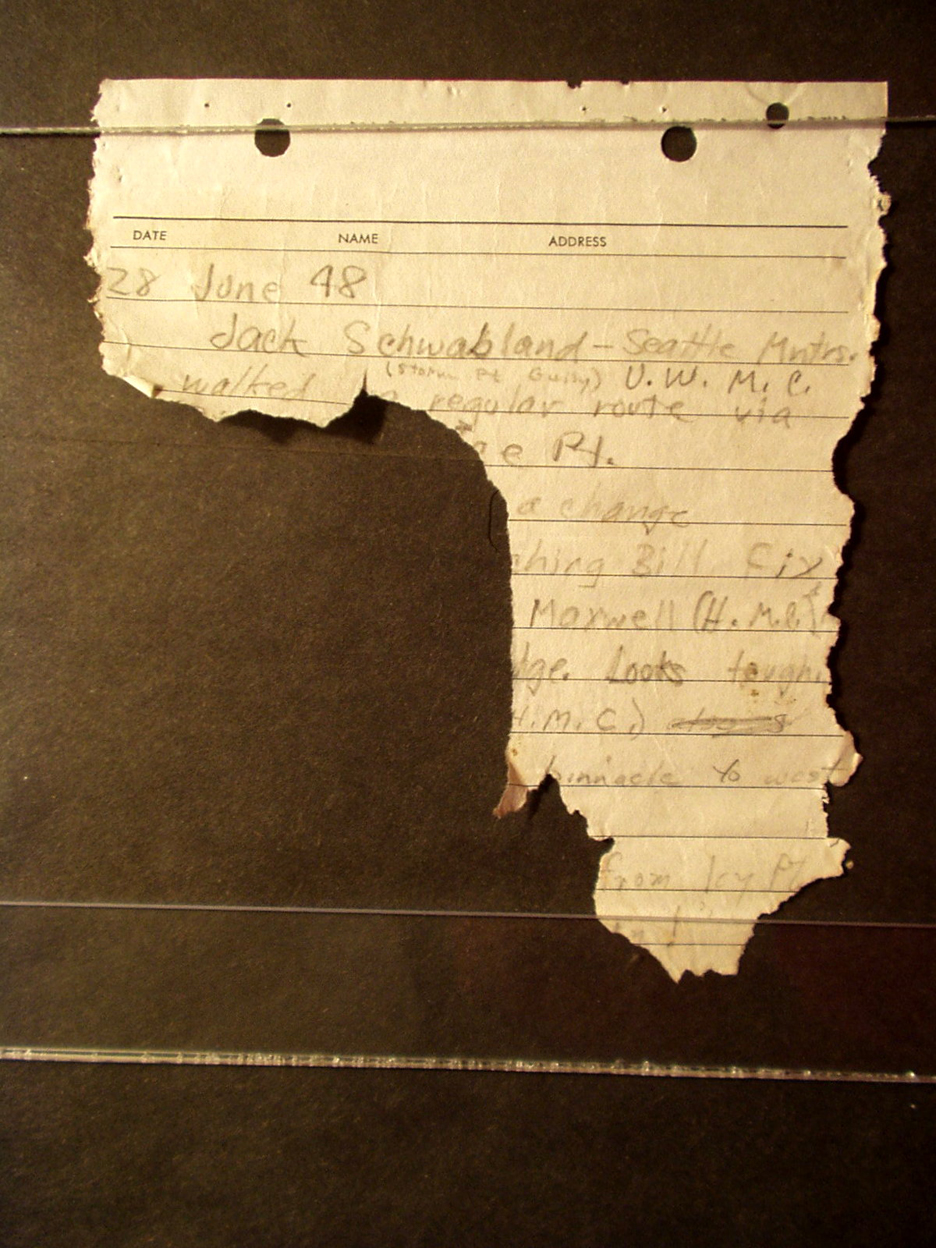 DATE NAME ADDRESS
28 June 48
Jack Schwabland - Seattle Mntrs.
(Storm Pt Guiny) U.W. M.C.
walked regular route via
e Pt.
a change
hing Bill Fix
Maxwell (H.M.C.)
dge. Looks tough.
H.M.C.)
pinnacle to west
from Icy Pt